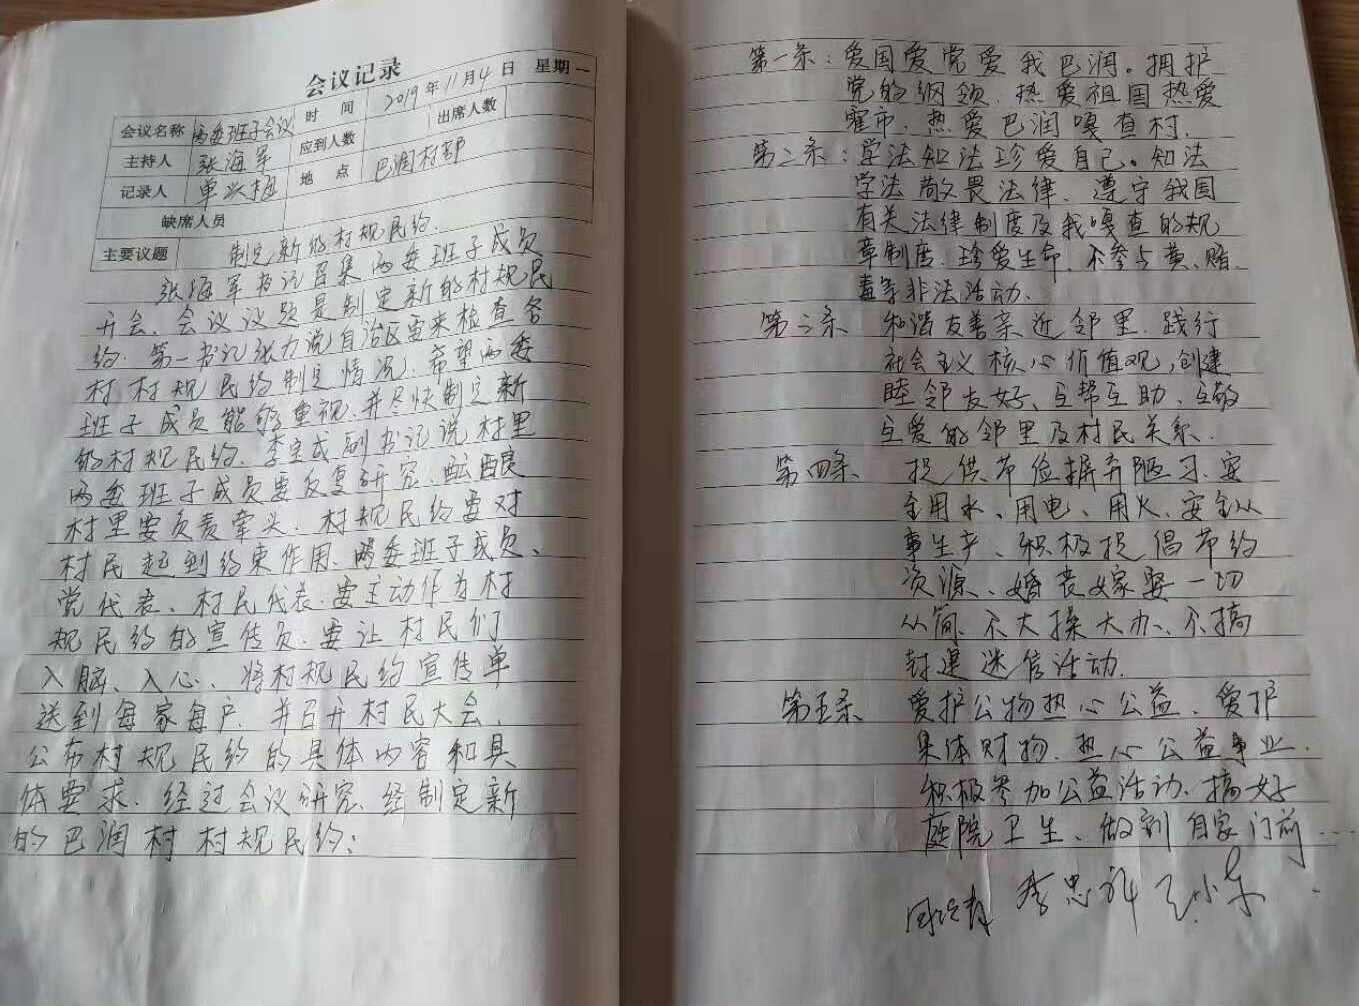 会议记录
会议名称 两委班子会议 时 间 2019年11月4日 星期一
主持人 张海军 应到人数 出席人数
记录人 单兴桓 地 点 巴润村部
缺席人员
主要议题 制定新的村规民约
张海军书记召集两委班子成员
开会、会议议题是制定新的村规民
约. 第一书记张力说自治区要来检查各
村村规民约制定情况、希望两委
班子成员能够重视.并尽快制定新
的村规民约、李宝成副书记说村里
两委班子成员要反复研究、酝酿
村里要负责牵头、村规民约要对
村民起到约束作用、两委班子成员、
党代表、村民代表.要主动作为村
规民约的宣传员.要让村民们
入脑、入心、将村规民约宣传单
送到每家每户.并召开村民大会、
公布村规民约的具体内容和具
体要求.经过会议研究、经制定新
的巴润村村规民约：
第一条：爱国爱党爱我巴润。拥护
党的纲领.热爱祖国热爱
霍市、热爱巴润嘎查村、
第二条：学法知法珍爱自己。知法
学法敬畏法律、遵守我国
有关法律制度及我嘎查的规
章制度.珍爱生命.不参与黄、赌、
毒等非法活动.
第三条 和谐友善亲近邻里.践行
社会主义核心价值观,创建
睦邻友好、互帮互助、互敬
互爱的邻里及村民关系.
第四条 提供节俭摒弃陋习、安
全用水、用电、用火、安全从
事生产、积极提倡节约
资源、婚丧嫁娶一切
从简、不大操大办、不搞
封建迷信活动.
第五条 爱护公物热心公益、爱护
集体财物.热心公益事业.
积极参加公益活动、搞好
庭院卫生、做到自家门前……
李忠